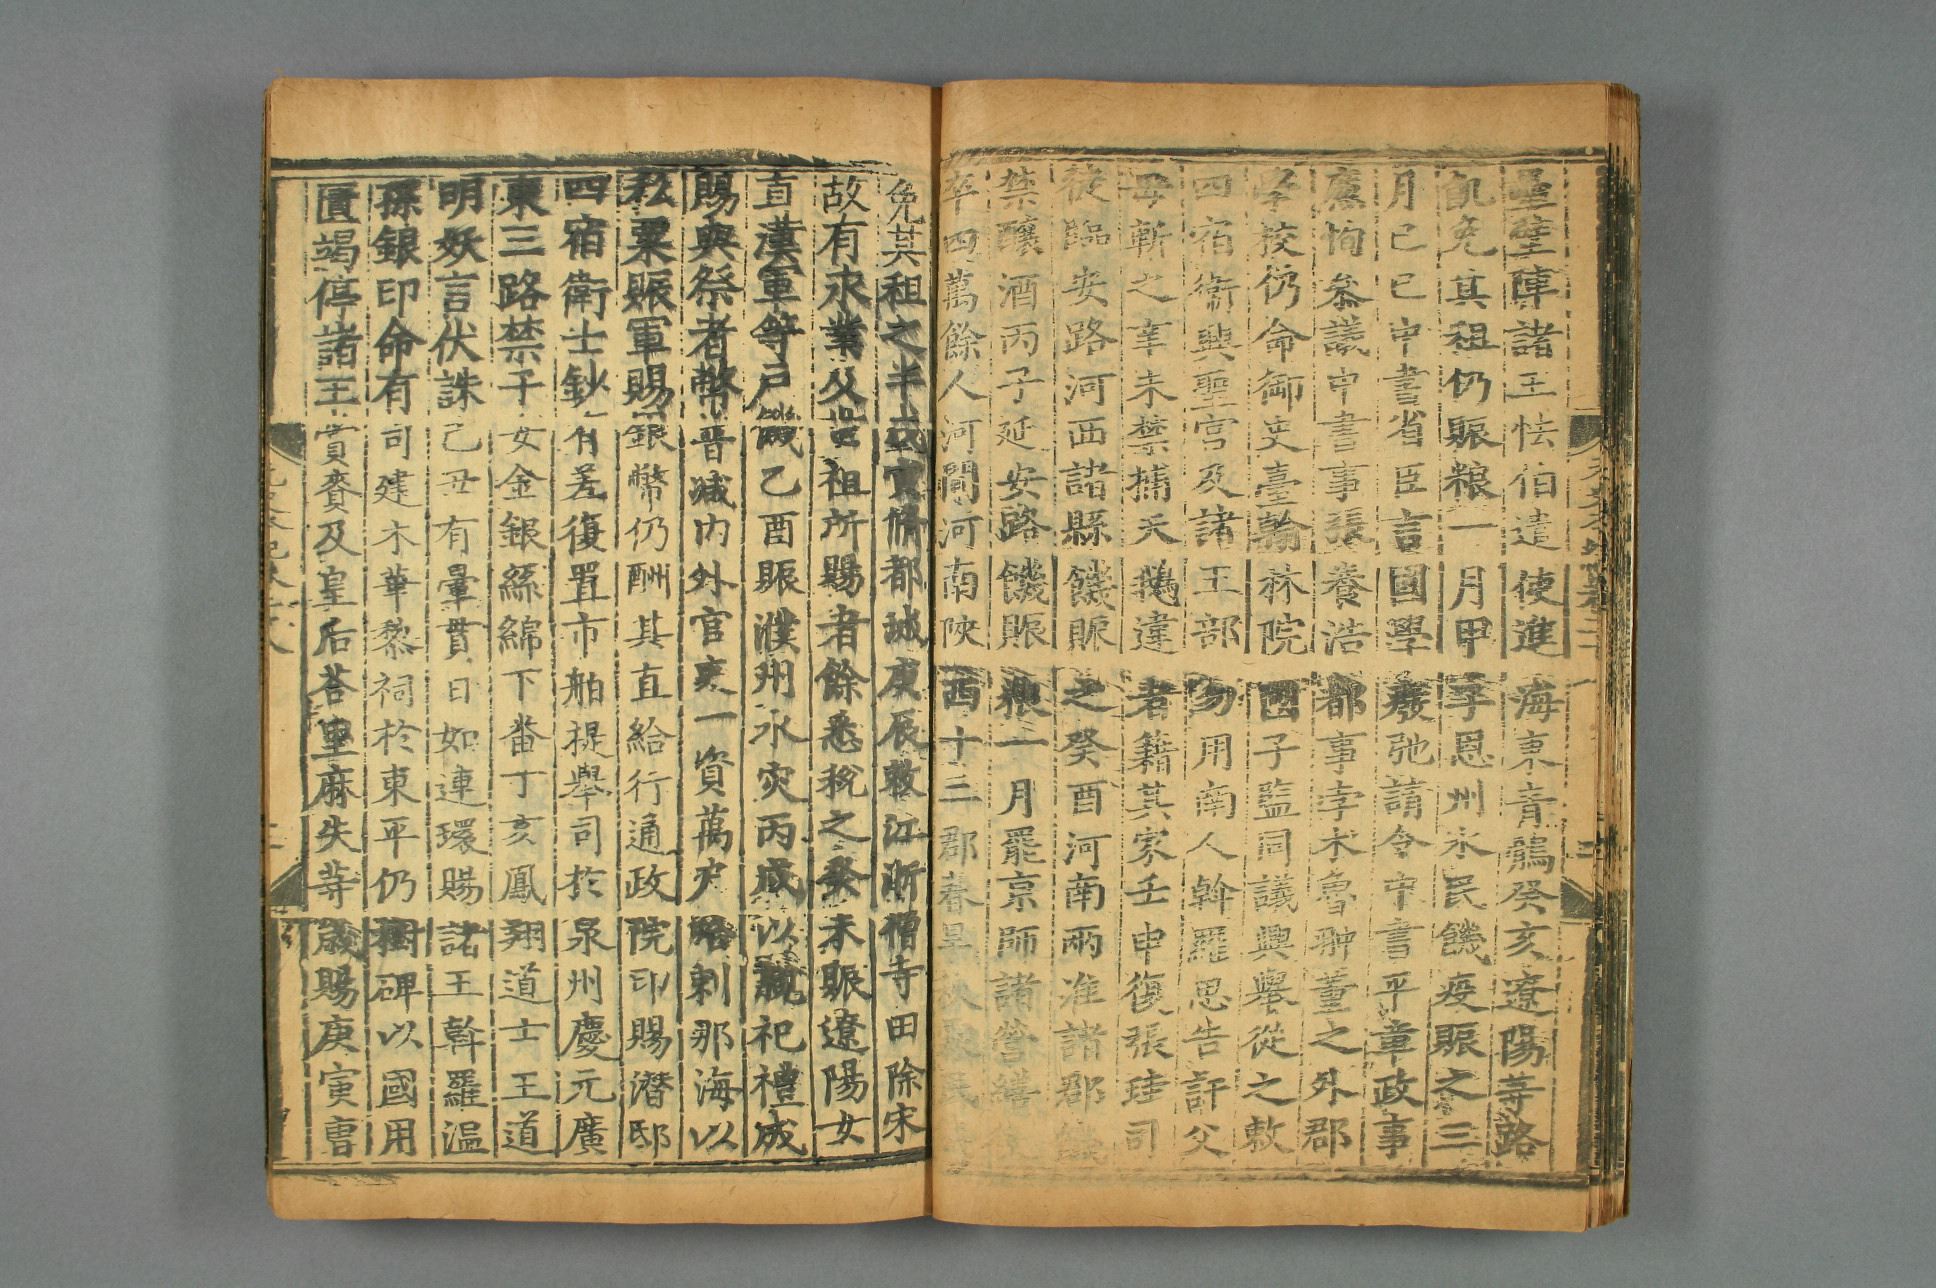 壘壁陣諸王怯伯遣使進海東青鶻癸亥遼陽等路
飢免其租仍賑粮一月甲子恩州水民饑疫賑之三
月己巳中書省臣言國學廢弛請令中書平章政事
廉恂參議中書事張養浩都事孛术魯翀董之外郡
學校仍命御史臺翰林院國子監同議興舉從之敕
四宿衛興聖宮及諸王部勿用南人斡羅思告訐父
母斬之辛未禁捕天鵝違者籍其家壬申復張珪司
徒臨安路河西諸縣饑賑之癸酉河南兩淮諸郡饑
禁釀酒丙子延安路饑賑粮一月罷京師諸營繕役
卒四萬餘人河間河南陝西十三郡春旱秋
免其租之半 脩都城庚辰敕江浙僧寺田除宋
故有永業及世祖所賜者餘悉稅之癸未賑遼陽女
直漢軍等戶饑乙酉賑濮州水灾丙戌以 祀禮成
賜與祭者幣普減内外官吏一資萬戶 剌那海以
私粟賑軍賜銀幣仍酬其直給行通政院印賜潛邸
四宿衛士鈔有差復置市舶提舉司於泉州慶元廣
東三路禁子女金銀絲綿下番丁亥鳳翔道士王道
明妖言伏誅己丑有暈貫日如連環賜諸王斡羅温
孫銀印命有司建木華黎祠於東平仍樹碑以國用
匱竭停諸王賞賚及皇后荅里麻失等歲賜庚寅曹